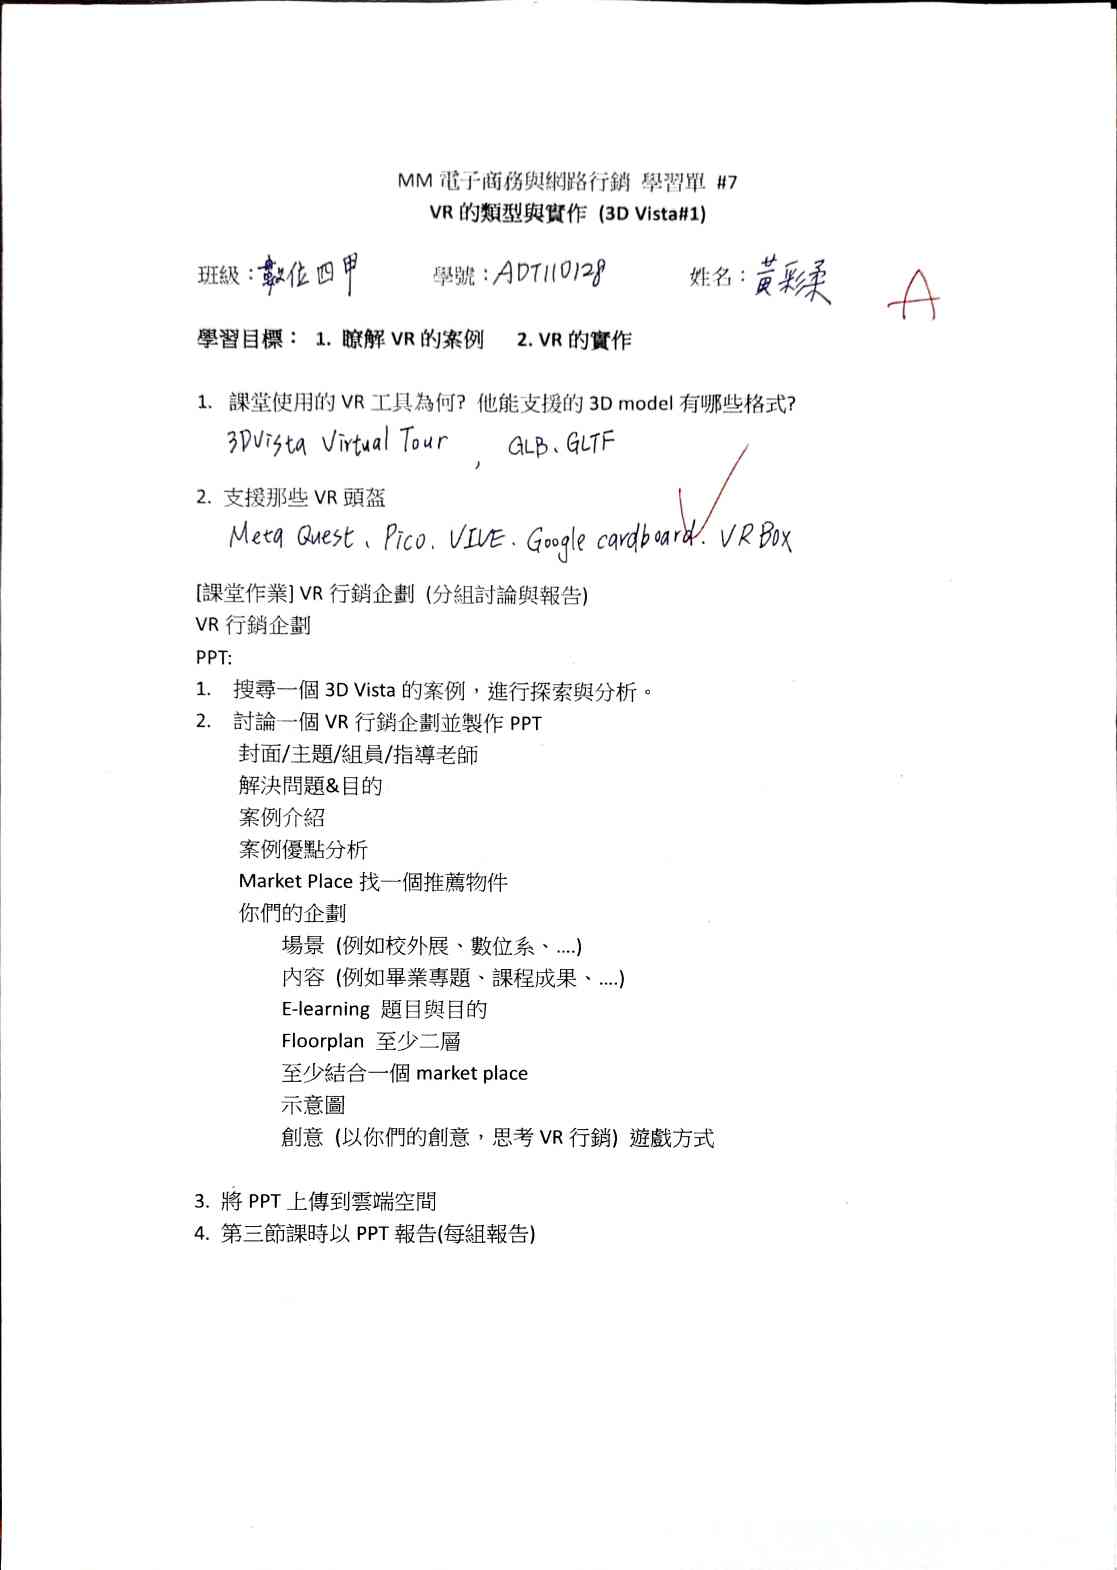 MM 電子商務與網路行銷 學習單 #7
VR 的類型與實作 (3D Vista#1)
班級：數位四甲 學號：ADT110128 姓名：黃彩柔
A
學習目標： 1. 瞭解 VR 的案例 2. VR 的實作
1. 課堂使用的 VR 工具為何? 他能支援的 3D model 有哪些格式?
3DVista Virtual Tour , GLB、GLTF
2. 支援那些 VR 頭盔
Meta Quest、Pico、VIVE、Google cardboard、VR Box
[課堂作業] VR 行銷企劃 (分組討論與報告)
VR 行銷企劃
PPT:
1. 搜尋一個 3D Vista 的案例，進行探索與分析。
2. 討論一個 VR 行銷企劃並製作 PPT
封面/主題/組員/指導老師
解決問題&目的
案例介紹
案例優點分析
Market Place 找一個推薦物件
你們的企劃
場景 (例如校外展、數位系、....)
內容 (例如畢業專題、課程成果、....)
E-learning 題目與目的
Floorplan 至少二層
至少結合一個 market place
示意圖
創意 (以你們的創意，思考 VR 行銷) 遊戲方式
3. 將 PPT 上傳到雲端空間
4. 第三節課時以 PPT 報告(每組報告)